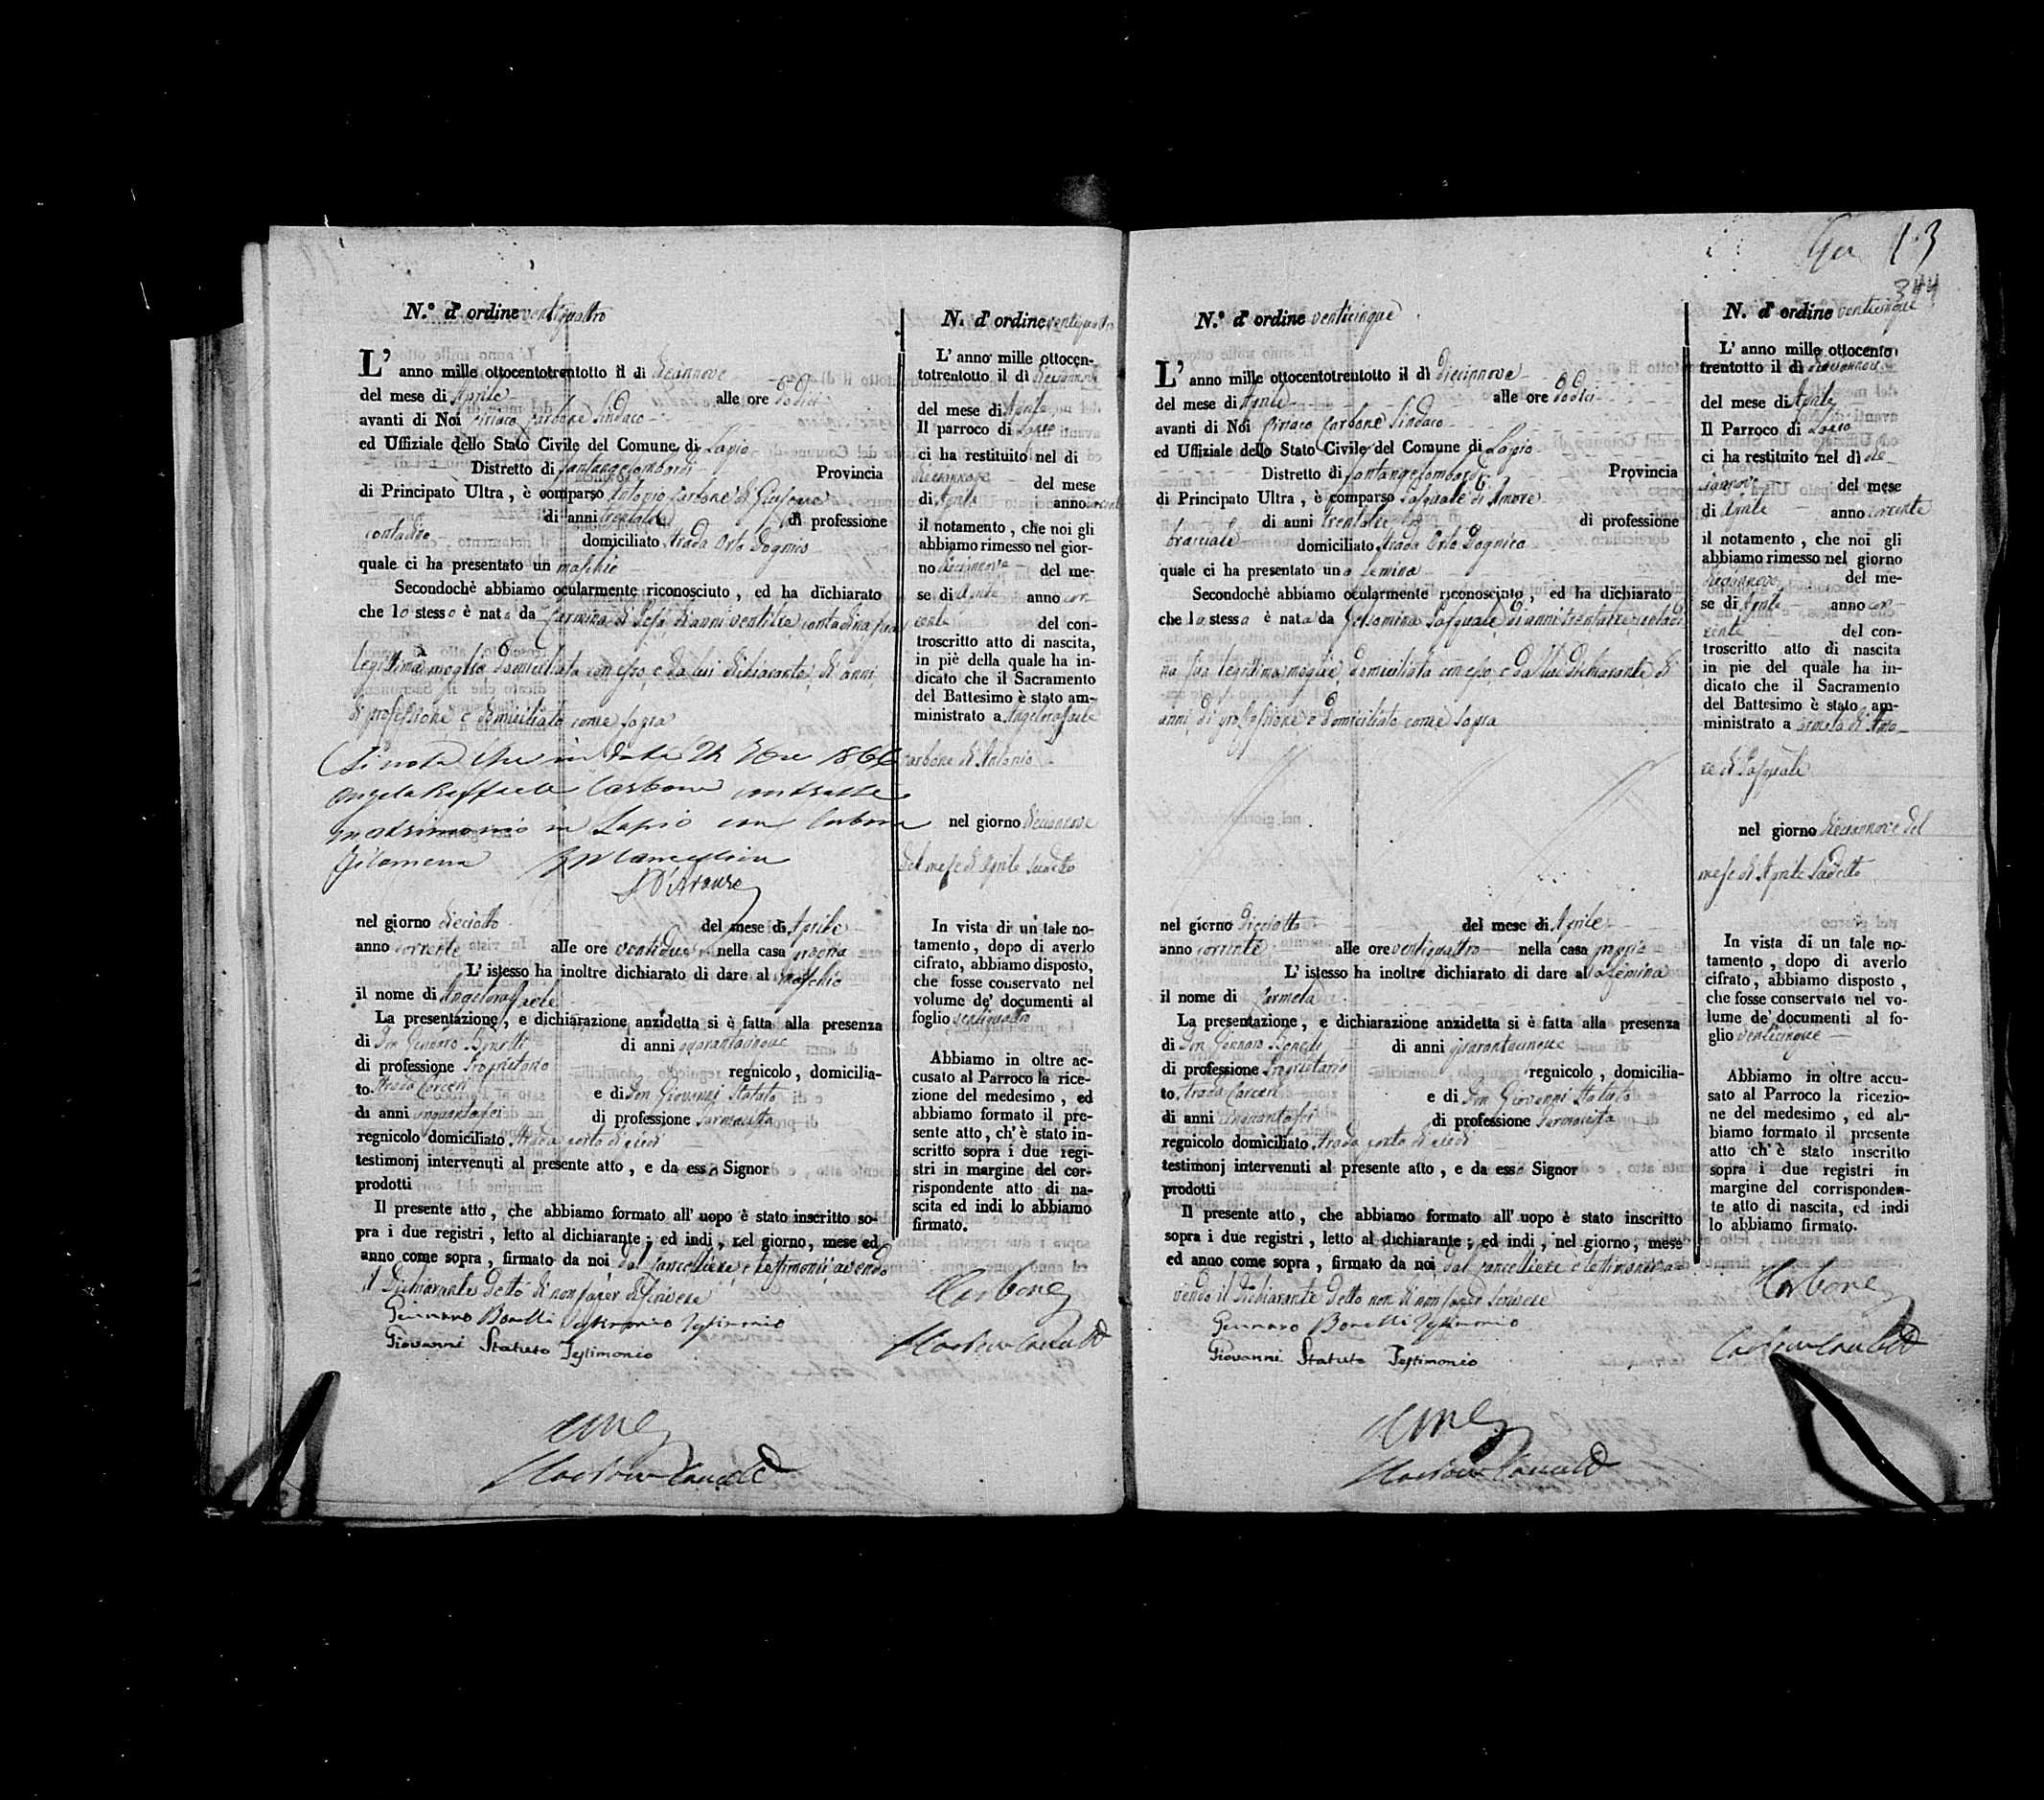 N.º d'ordine ventiquattro
L' anno mille ottocentotrentotto il dì diciannove
del mese di Aprile alle ore dodici
avanti di Noi Ciriaco Carbone Sindaco
ed Uffiziale dello Stato Civile del Comune di Lapio
Distretto di Santangelombardi Provincia
di Principato Ultra, è comparso Antonio Carbone di
di anni di professione
contadino domiciliato Strada Orto
quale ci ha presentato un maschio
Secondochè abbiamo ocularmente riconosciuto, ed ha dichiarato
che lo stesso è nato da Carmina di di anni ventitre contadina sua
legittima moglie domiciliata con esso, e da lui dichiarante, di anni,
di professione e domiciliato come sopra
Si nota che in data 24
Angelo Raffaele Carbone contrasse
matrimonio in Lapio con Carbone
Filomena
nel giorno dieciotto del mese di Aprile
anno corrente alle ore ventidue nella casa propria
L' istesso ha inoltre dichiarato di dare al maschio
il nome di Angeloraffaele
La presentazione, e dichiarazione anzidetta si è fatta alla presenza
di Don Gennaro Bonelli di anni quarantacinque
di professione Proprietario regnicolo, domicilia-
to Strada Carceri e di Don Giovanni Statuto
di anni cinquantasei di professione Farmacista
regnicolo domiciliato Strada
testimonj intervenuti al presente atto, e da esso Signor
prodotti
Il presente atto, che abbiamo formato all' uopo è stato inscritto so-
pra i due registri, letto al dichiarante; ed indi, nel giorno, mese ed
anno come sopra, firmato da noi dal Cancelliere, e testimonii avendo
il dichiarante detto di non saper scrivere
Gennaro Bonelli Testimonio
Giovanni Statuto Testimonio
N. d' ordine ventiquattro
L' anno mille ottocen-
totrentotto il dì diciannove
del mese di Aprile
Il parroco di Lapio
ci ha restituito nel di
diciannove del mese
di Aprile anno corrente
il notamento, che noi gli
abbiamo rimesso nel gior-
no diciannove del me-
se di Aprile anno cor-
rente del con-
troscritto atto di nascita,
in piè della quale ha in-
dicato che il Sacramento
del Battesimo è stato am-
ministrato a Angeloraffaele
Carbone di Antonio
nel giorno diciannove
del mese di Aprile sudetto
In vista di un tale no-
tamento, dopo di averlo
cifrato, abbiamo disposto,
che fosse conservato nel
volume de' documenti al
foglio ventiquattro
Abbiamo in oltre ac-
cusato al Parroco la rice-
zione del medesimo, ed
abbiamo formato il pre-
sente atto, ch' è stato in-
scritto sopra i due regi-
stri in margine del cor-
rispondente atto di na-
scita ed indi lo abbiamo
firmato.
Carbone
13
344
N.º d' ordine venticinque
L' anno mille ottocentotrentotto il dì diecinnove
del mese di Aprile alle ore dodici
avanti di Noi Ciriaco Carbone Sindaco
ed Uffiziale dello Stato Civile del Comune di Lapio
Distretto di Santangelombardi Provincia
di Principato Ultra, è comparso Pasquale di Amore
di anni di professione
bracciale domiciliato Strada Orto
quale ci ha presentato una femina
Secondochè abbiamo ocularmente riconosciuto, ed ha dichiarato
che la stessa è nata da Gelsomina Pasquale di anni trentatre contadi
na, sua legittima moglie, domiciliata con esso, e da lui dichiarante, di
anni, di professione, e domiciliato come sopra
nel giorno dieciotto del mese di Aprile
anno corrente alle ore ventiquattro nella casa propria
L' istesso ha inoltre dichiarato di dare alla femina
il nome di Carmela
La presentazione, e dichiarazione anzidetta si è fatta alla presenza
di Don Gennaro Bonelli di anni quarantacinque
di professione Proprietario regnicolo, domicilia-
to Strada Carceri e di Don Giovanni Statuto
di anni cinquantasei di professione Farmacista
regnicolo domiciliato Strada
testimonj intervenuti al presente atto, e da esso Signor
prodotti
Il presente atto, che abbiamo formato all' uopo è stato inscritto
sopra i due registri, letto al dichiarante; ed indi, nel giorno, mese
ed anno come sopra, firmato da noi dal Cancelliere e testimonii a-
vendo il dichiarante detto non di non saper scrivere
Gennaro Bonelli Testimonio
Giovanni Statuto Testimonio
N. d' ordine venticinque
L' anno mille ottocento
trentotto il dì diciannove
del mese di Aprile
Il Parroco di Lapio
ci ha restituito nel dì die-
ciannove del mese
di Aprile anno corrente
il notamento, che noi gli
abbiamo rimesso nel giorno
diciannove del me-
se di Aprile anno cor-
rente del con-
troscritto atto di nascita
in pie del quale ha in-
dicato che il Sacramento
del Battesimo è stato am-
ministrato a Carmela di Amo-
re di Pasquale
nel giorno diecinnove del
mese di Aprile sudetto
In vista di un tale no-
tamento, dopo di averlo
cifrato, abbiamo disposto,
che fosse conservato nel vo-
lume de' documenti al fo-
glio venticinque
Abbiamo in oltre accu-
sato al Parroco la ricezio-
ne del medesimo, ed ab-
biamo formato il presente
atto ch' è stato inscritto
sopra i due registri in
margine del corrisponden-
te atto di nascita, ed indi
lo abbiamo firmato.
Carbone